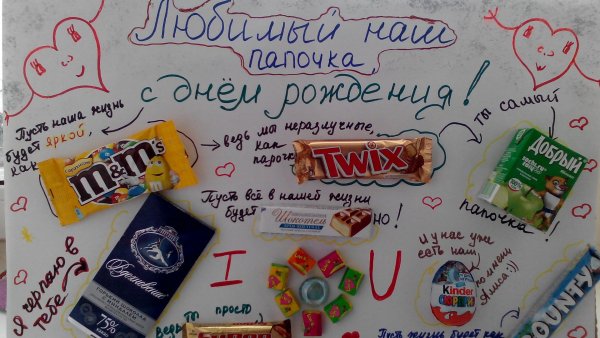 Любимый наш
папочка,
с днём рождения!
Пусть наша жизнь
будет яркой,
как
m&m's
ведь мы неразлучные,
как
парочка
TWIX
ты самый
Добрый
папочка!
Пусть всё в нашей жизни
будет
Шокотель
но!
Я черпаю в
тебе
Вдохновение
75%
I
U
и у нас уже
есть наш
Kinder
сюрприз
(помни
Алиса:))
BOUNTY
ведь ты просто
Пусть жизнь будет как